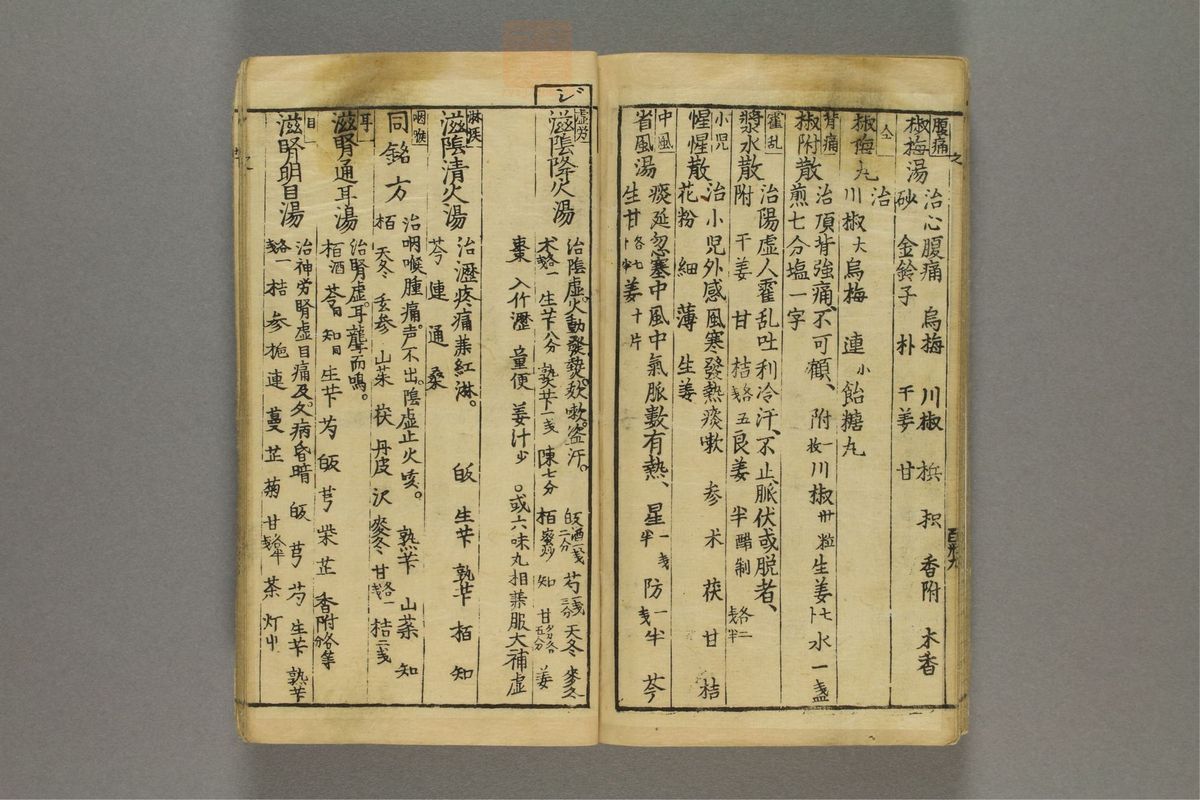 腹痛
椒梅湯 治心腹痛 烏梅 川椒 梹 枳 香附 木香
砂 金鈴子 朴 干姜 甘
仝
椒梅丸 治
川椒大 烏梅 連小 飴糖丸
背痛
椒附散 治頂背強痛、不可顧、附一枚 川椒卅粒 生姜七卜 水一盞
煎七分塩一字
霍乱
漿水散 治陽虚人霍乱吐利冷汗、不止脈伏或脱者、
附 干姜 甘 桔各戔 五 良姜 半醋制各二戔半
小児
惺惺散 治小児外感風寒發熱痰嗽 参 术 茯 甘 桔
花粉 細 薄 生姜
中風
省風湯 痰延忽塞中風中氣脈數有熱、星一戔半 防一戔半 芩
生甘各七卜半 姜十片
ジ
虚労
滋陰降火湯 治陰虚。火動發熱。欬嗽。盗汗。 皈酒一戔二分 芍一戔三分 天冬 麥冬
术各一戔 生芐八分 熟芐一戔 陳七分 栢蜜炒 知 甘各五分 姜
棗 入竹瀝 童便 姜汁少 。或六味丸相兼服大補虚
淋
滋陰清火湯 治瀝疼痛兼紅淋。 皈 生芐 熟芐 栢 知
芩 連 通 桑
咽喉
同銘方 治咽喉腫痛。声不出。陰虚止火咳。 熟芐 山菜 知
栢 天冬 玄参 山茱 茯 丹皮 沢 麥冬 甘各一戔 桔二戔
耳
滋腎通耳湯 治腎虚。耳聾而鳴。
栢酒 芩同 知同 生芐 芍 皈 芎 柴 芷 香附各等分
目
滋腎明目湯 治神労腎虚目痛及。久病昏暗 皈 芎 芍 生芐 熟芐
各一戔 桔 参 梔 連 蔓 芷 菊 甘各半戔 茶 灯中